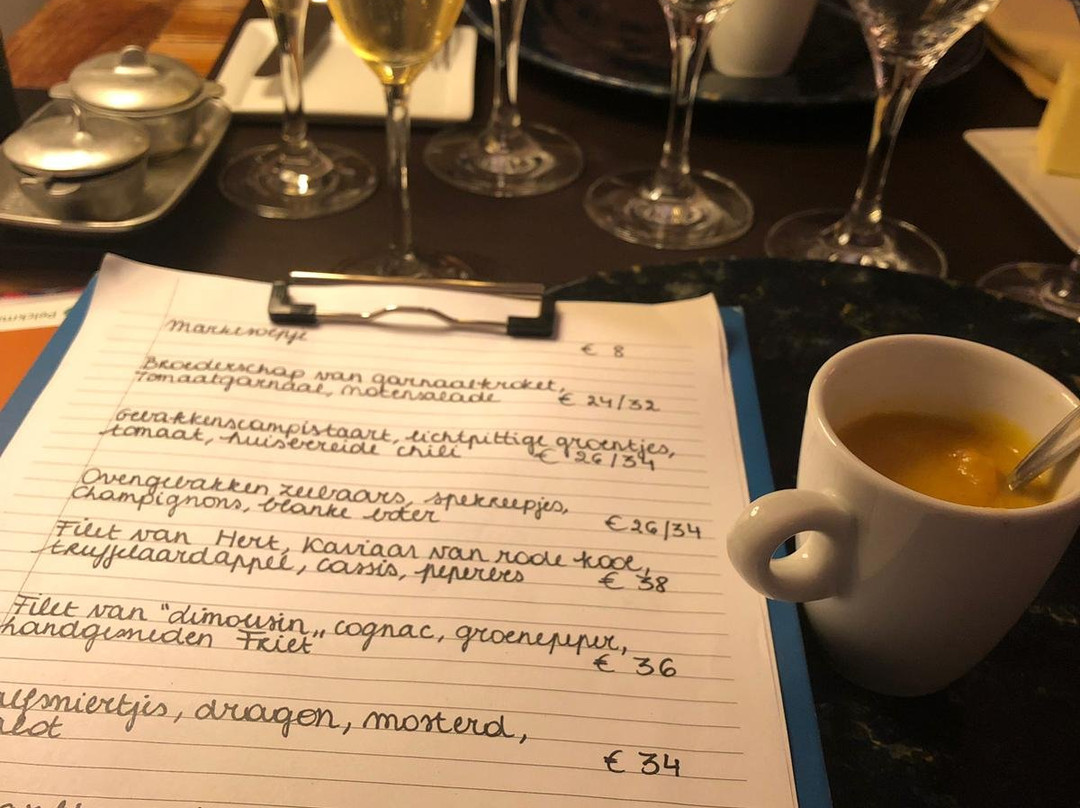 Marktsoepje
€ 8
Broederschap van garnaalkroket,
Tomaatgarnaal, notensalade € 24/32
Gebakkenscampistaart, lichtpittige groentjes,
tomaat, huisbereide chili € 26/34
Ovengebakken zeebaars, spekreepjes,
Champignons, blanke boter € 26/34
Filet van Hert, Kaviaar van rode kool,
truffelaardappel, cassis, peperers € 38
Filet van "limousin„ cognac, groenepeper,
handgesneden Friet" € 36
alfsniertjes, dragon, mosterd,
€ 34